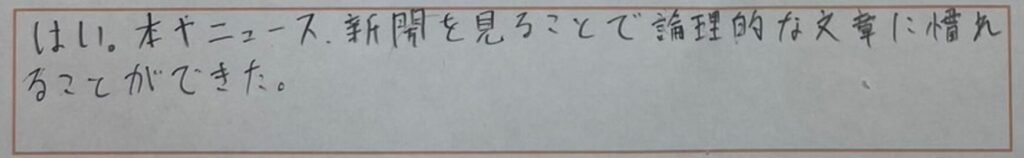 はい。本やニュース、新聞を見ることで論理的な文章に慣れ
ることができた。